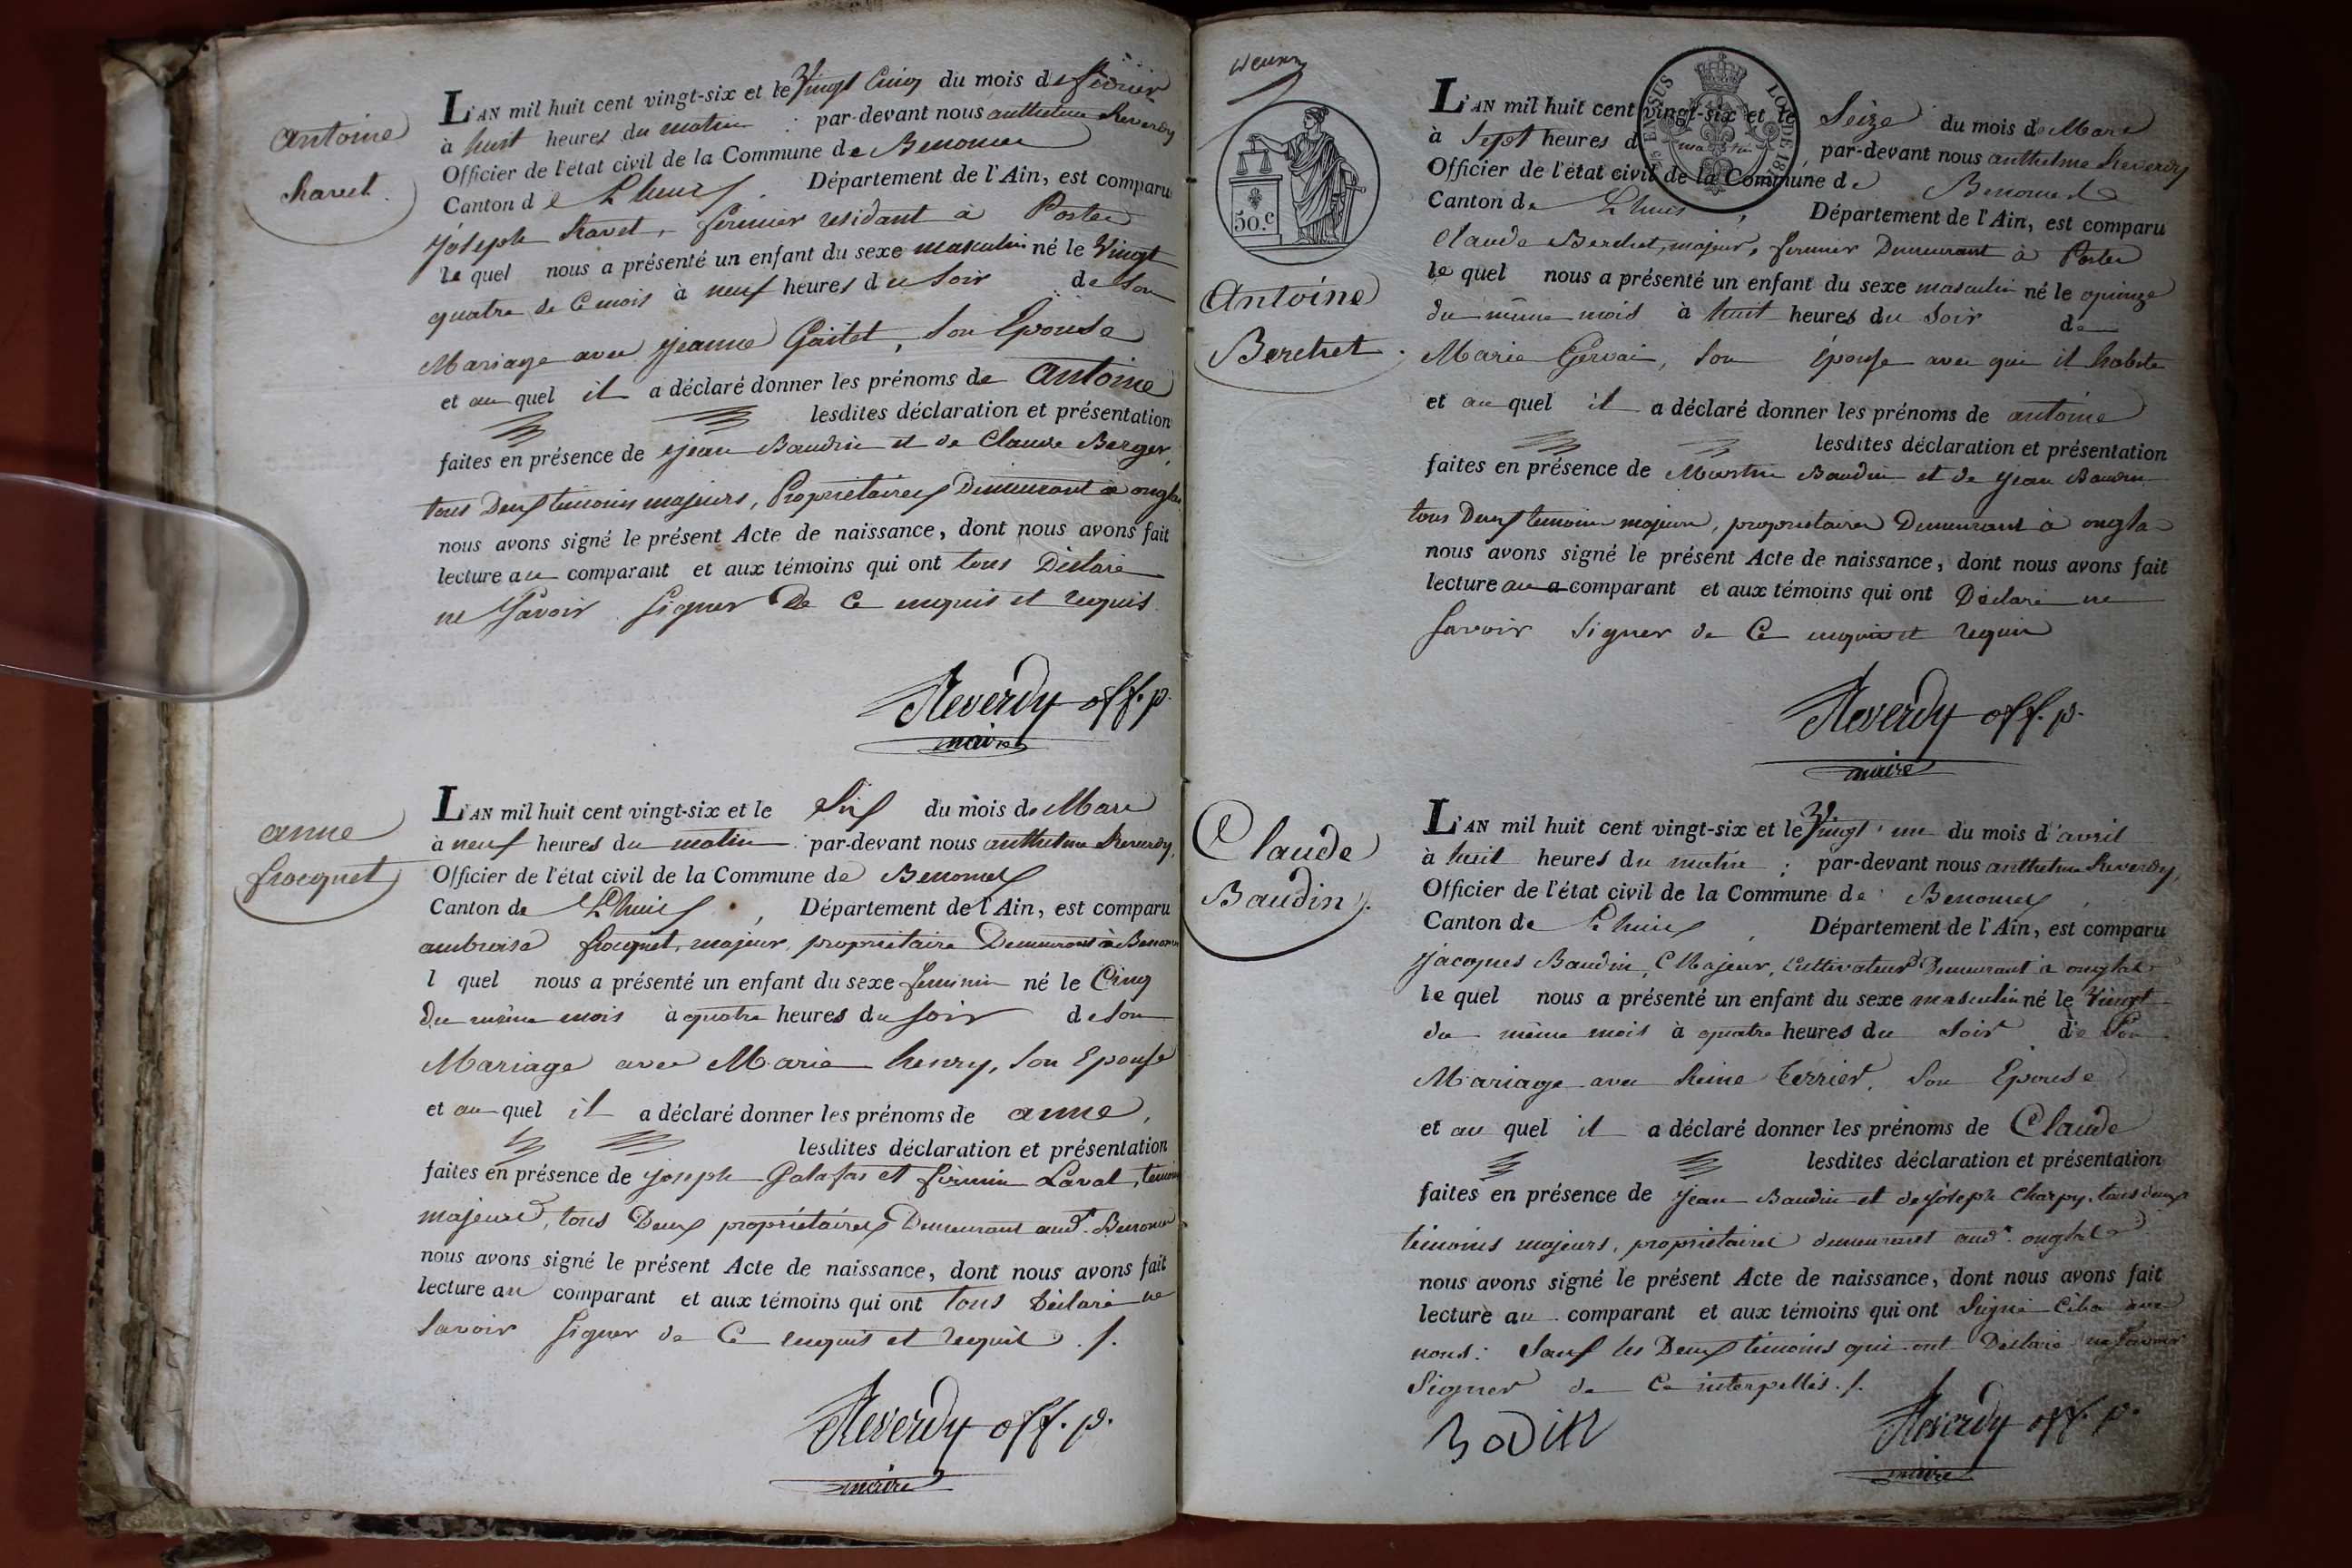 Antoine
Ravet.
L'AN mil huit cent vingt-six et le Vingt Cinq du mois de fevrier
à huit heures du matin : par-devant nous anthelme Reverdy
Officier de l'état civil de la Commune de Benonces
Canton de Lhuis. Département de l'Ain, est comparu
joseph Ravet, fermier residant à Portes
le quel nous a présenté un enfant du sexe masculin né le Vingt
quatre de ce mois à neuf heures du soir de son
Mariage avec jeanne Gaitet, son Epouse
et au quel il a déclaré donner les prénoms de antoine
lesdites déclaration et présentation
faites en présence de jean Baudin et de Claude Berger,
tous Deux temoins majeurs, Proprietaires Demeurant à onglas
nous avons signé le présent Acte de naissance, dont nous avons fait
lecture au comparant et aux témoins qui ont tous Déclaré
ne Savoir signer De Ce enquis et requis.
Reverdy off. p.
maire
anne
frocquet
L'AN mil huit cent vingt-six et le Six du mois de Mars
à neuf heures du matin : par-devant nous anthelme Reverdy,
Officier de l'état civil de la Commune de Benonces
Canton de Lhuis, Département de l'Ain, est comparu
ambroise frocquet, majeur, proprietaire Demeurant à Benonces
l quel nous a présenté un enfant du sexe feminin né le Cinq
du même mois à quatre heures du soir de son
Mariage avec Marie henry, son Epouse
et au quel il a déclaré donner les prénoms de anne,
lesdites déclaration et présentation
faites en présence de joseph Galafas et firmin Laval, temoins
majeurs, tous Deux propriétaires Demeurant aud. Benonces
nous avons signé le présent Acte de naissance, dont nous avons fait
lecture au comparant et aux témoins qui ont tous Déclaré ne
savoir signer de Ce enquis et requis ./.
Reverdy off. p.
maire
50.c
Antoine
Berchet.
L'AN mil huit cent vingt-six et le Seize du mois de Mars
à sept heures du matin, par-devant nous anthelme Reverdy
Officier de l'état civil de la Commune de Benonces
Canton de Lhuis, Département de l'Ain, est comparu
Claude Berchet, majeur, fermier Demeurant à Portes
le quel nous a présenté un enfant du sexe masculin né le quinze
du même mois à huit heures du soir de
Marie Gervais, son épouse avec qui il habite
et au quel il a déclaré donner les prénoms de antoine
lesdites déclaration et présentation
faites en présence de Martin Baudin et de jean Baudin
tous Deux temoins majeurs, proprietaires Demeurant à onglas
nous avons signé le présent Acte de naissance, dont nous avons fait
lecture au comparant et aux témoins qui ont Déclaré ne
savoir signer de Ce enquis et requis
Reverdy off. p.
maire
Claude
Baudin.
L'AN mil huit cent vingt-six et le Vingt un du mois d'avril
à huit heures du matin ; par-devant nous anthelme Reverdy,
Officier de l'état civil de la Commune de Benonces
Canton de Lhuis, Département de l'Ain, est comparu
jacques Baudin, Majeur, Cultivateur Demeurant à onglas
le quel nous a présenté un enfant du sexe masculin né le Vingt
du même mois à quatre heures du soir de son
Mariage avec Reine Terrier, son Epouse
et au quel il a déclaré donner les prénoms de Claude
lesdites déclaration et présentation
faites en présence de jean Baudin et de joseph Charpy, tous deux
temoins majeurs, proprietaires demeurant aud. onglas
nous avons signé le présent Acte de naissance, dont nous avons fait
lecture au comparant et aux témoins qui ont signé avec
nous: sauf les Deux temoins qui ont Déclaré ne savoir
Signer de Ce interpellés ./.
Bodin
Reverdy off. p.
maire